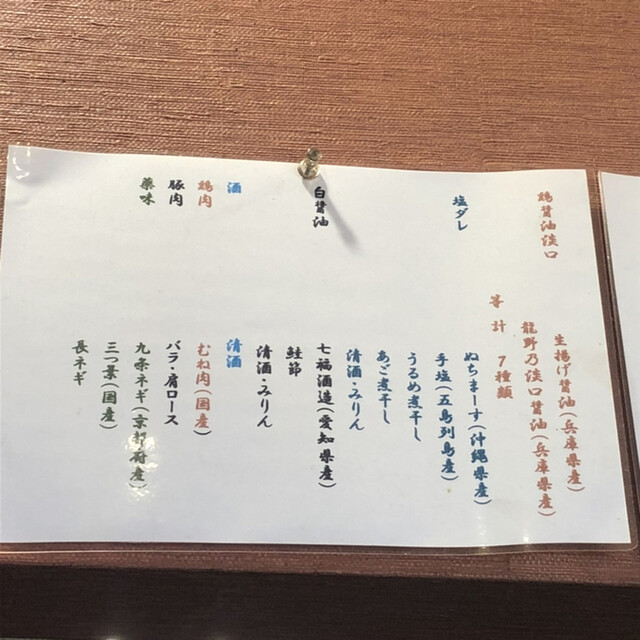 鶏醤油淡口
生揚げ醤油(兵庫県産)
龍野乃淡口醤油(兵庫県産)
等 計 7種類
塩ダレ
ぬちまーす(沖縄県産)
手塩(五島列島産)
うるめ煮干し
あご煮干し
清酒・みりん
白醤油
七福酒造(愛知県産)
鮭節
清酒・みりん
酒
清酒
鶏肉
むね肉(国産)
豚肉
バラ・肩ロース
薬味
九条ネギ(京都府産)
三つ葉(国産)
長ネギ